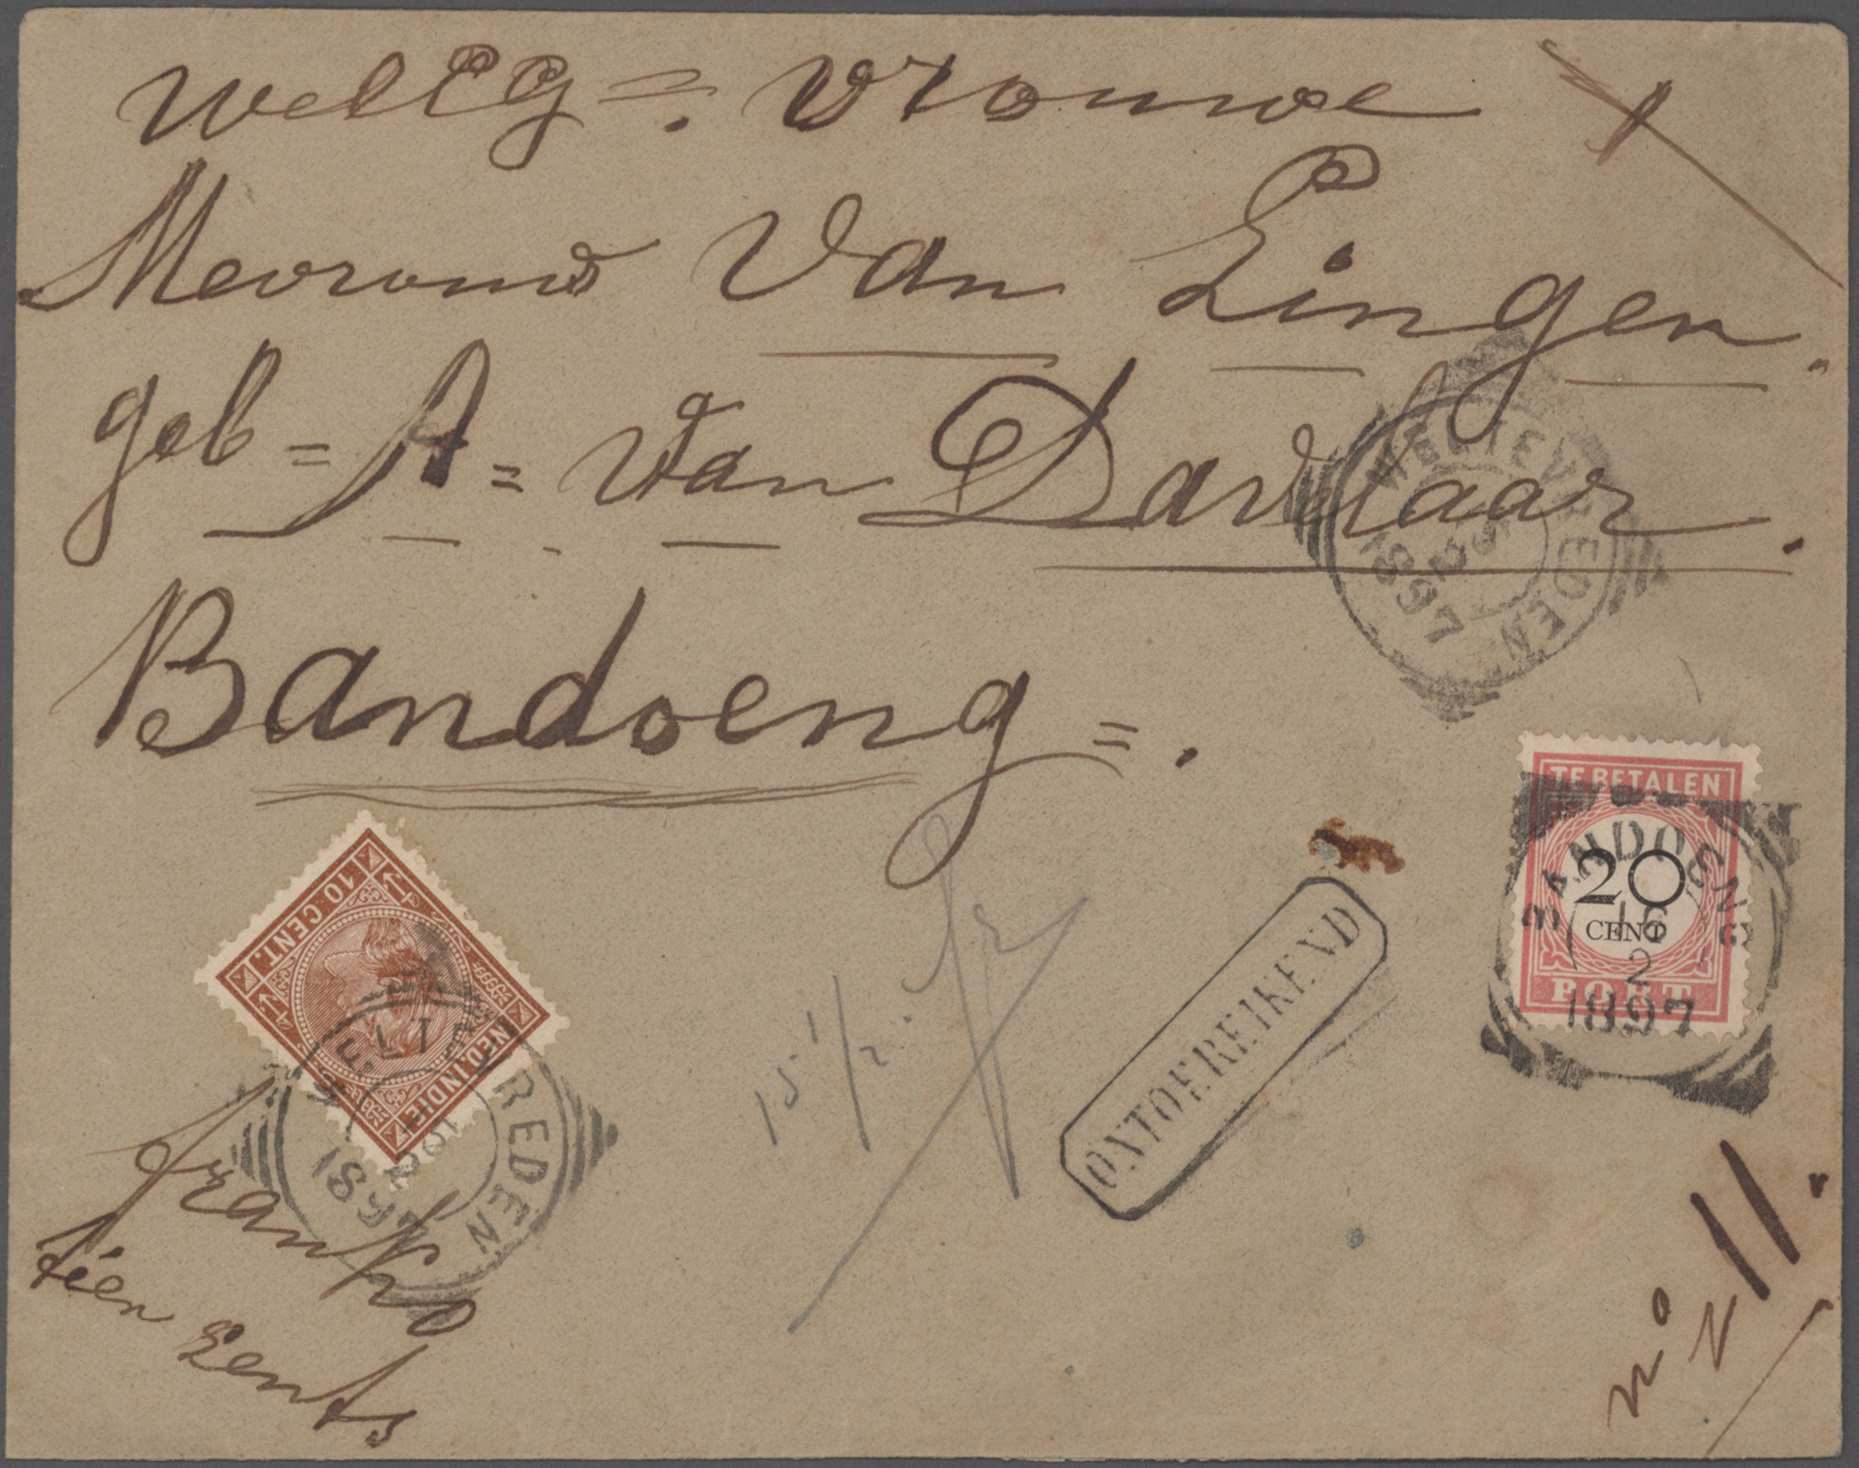 WelEg =. Vrouwe
Mevrouw Van Lingen.
geb = A = Van Davelaar.
Bandoeng =.
WELTEVREDEN
1897
TE BETALEN
20
CENT
PORT
BANDOENG
16
2
1897
10 CENT.
NED. INDIE
WELTEVREDEN
1897
15 1/2 gr
ONTOEREIKEND
franko
tien Cents
no 11.